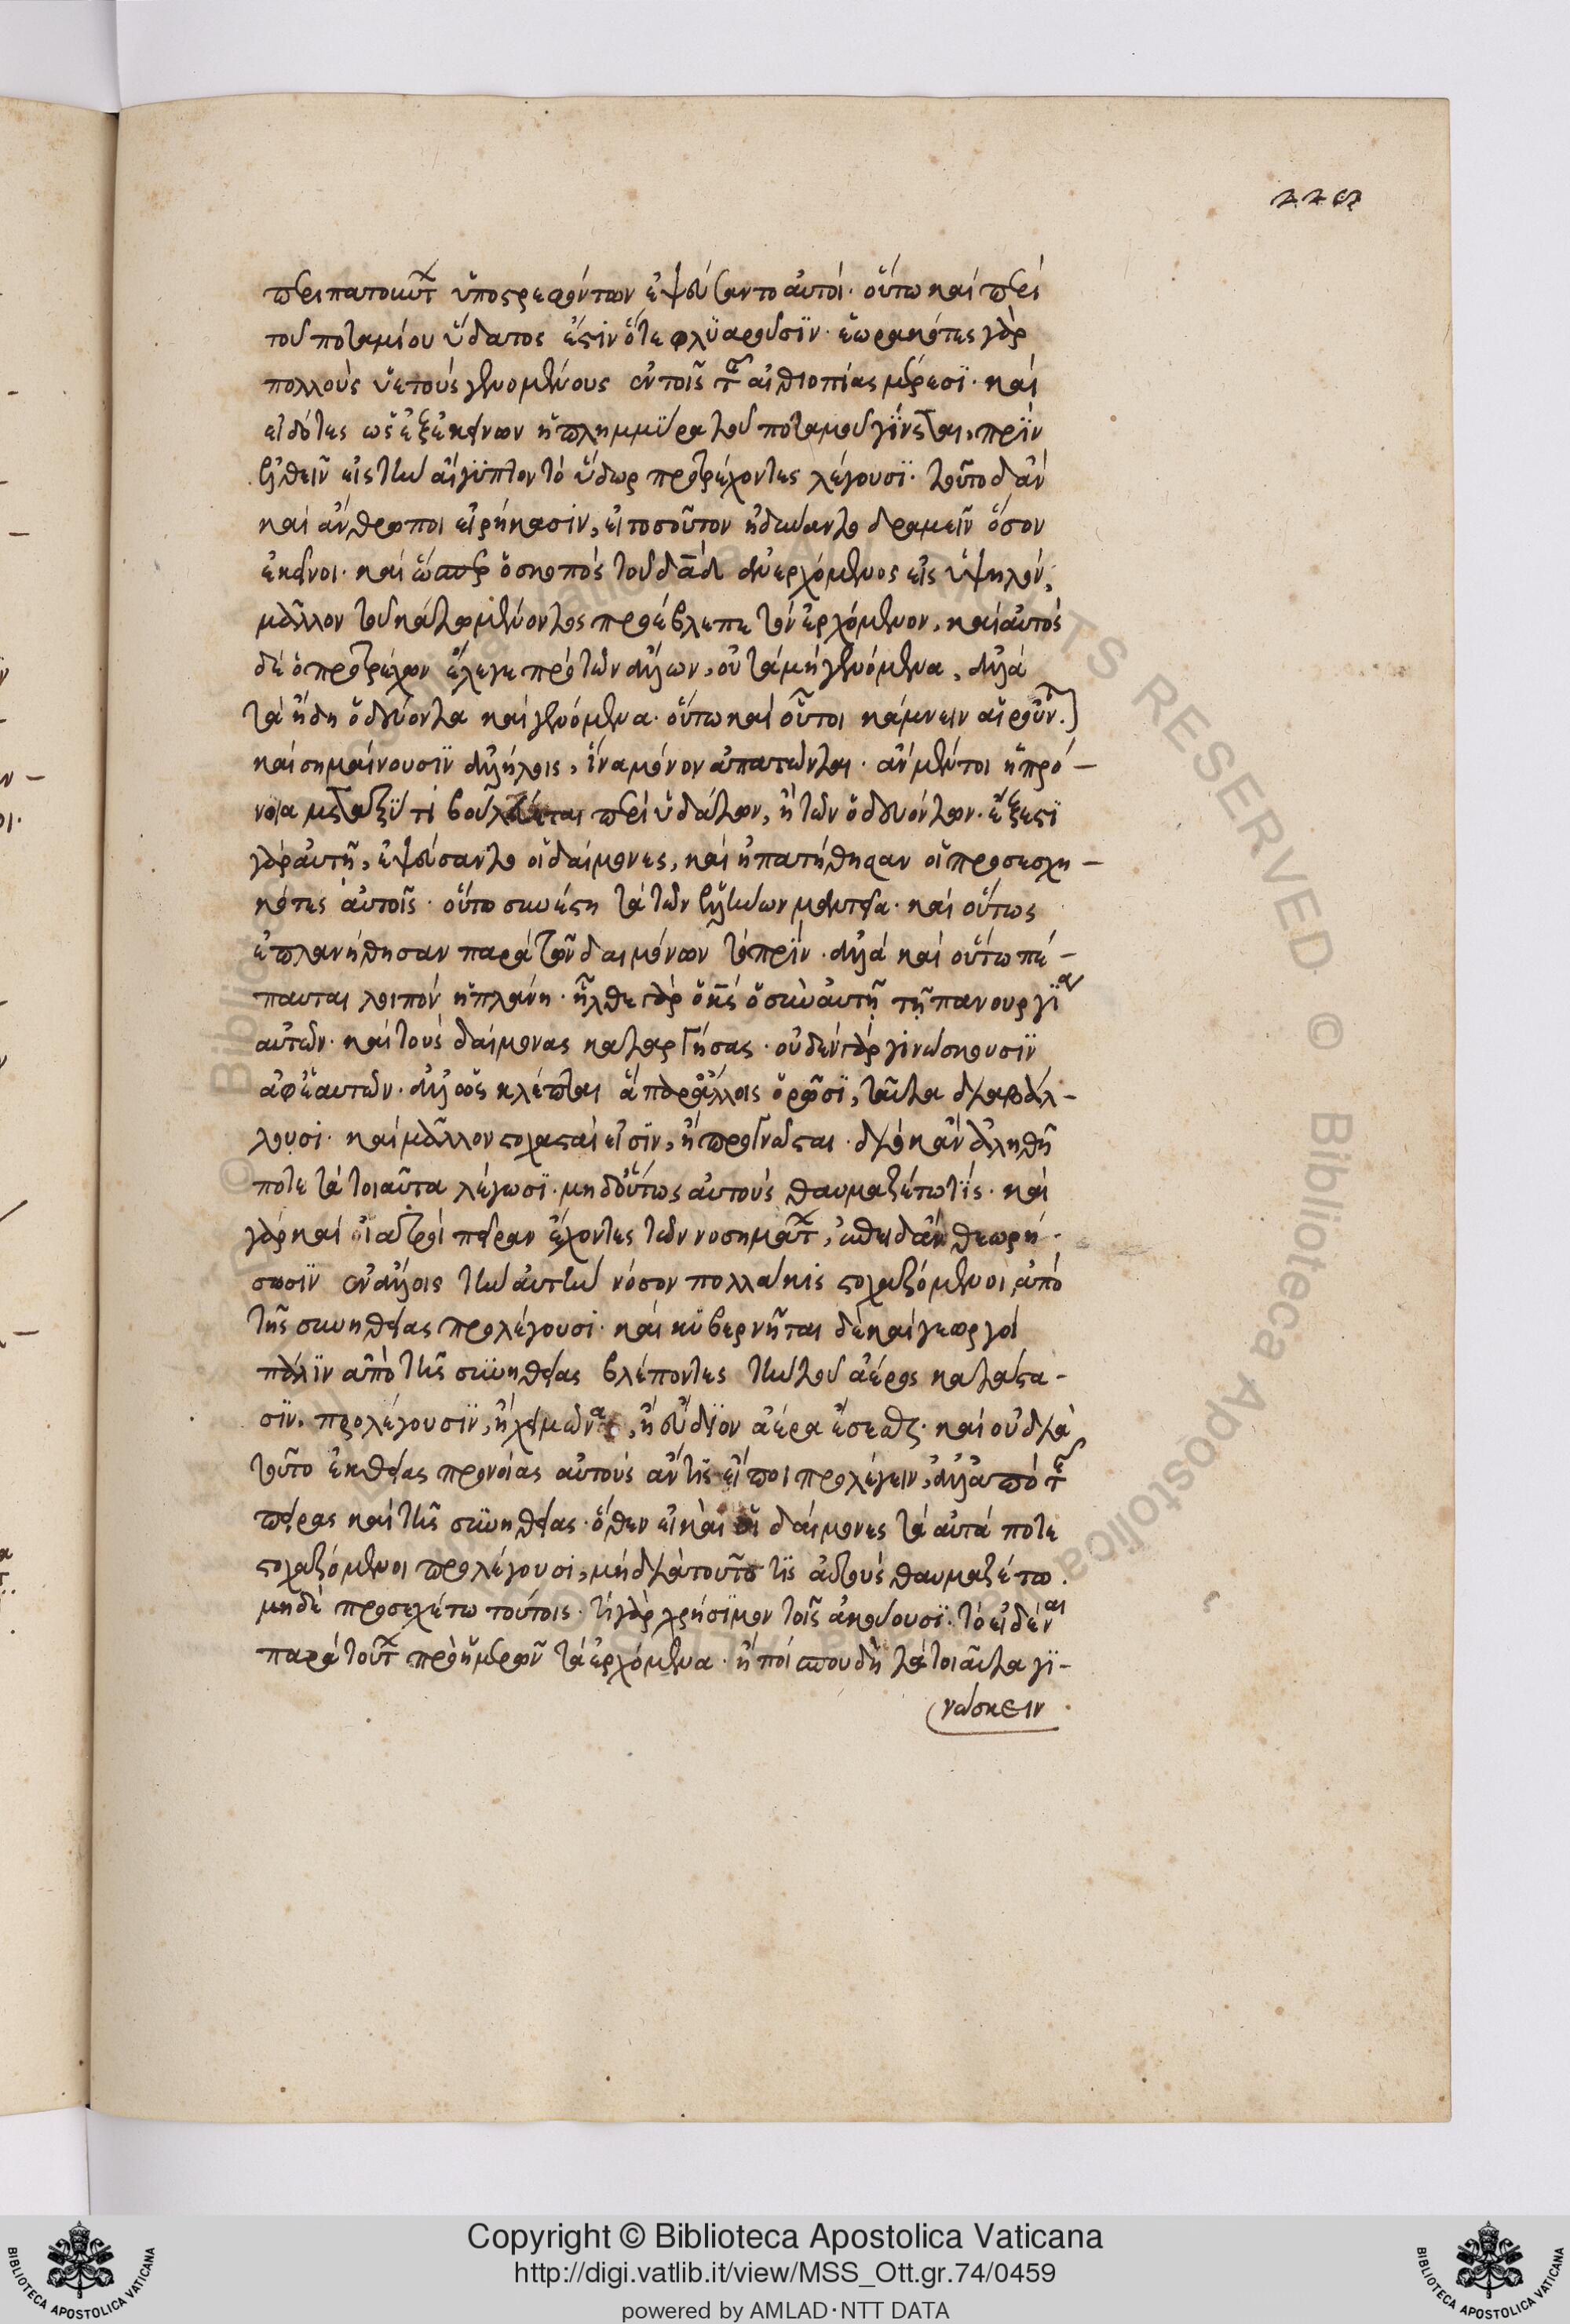 226
περιπατούντων ὑποστρεφόντων ἐψεύσαντο αὐτοί· οὕτω καὶ περὶ
τοῦ ποταμίου ὕδατος ἔστιν ὅτε φλϋαροῦσϊν· ἑωρακότες γὰρ
πολλοὺς ὑετοὺς γενομένους ἐν τοῖς τῆς αἰθιοπίας μέρεσϊ· καὶ
εἰδότες ὡς ἐξ ἐκείνων ἡ πλημμΰρα τοῦ ποταμοῦ γίνεται, πρὶν
ἐλθεῖν εἰς τὴν αἴγϋπτον τὸ ὕδωρ προτρέχοντες λέγουσϊ· τοῦτο δ' ἂν
καὶ ἄνθρωποι εἰρήκασιν, εἰ τοσοῦτον ἠδύναντο δραμεῖν ὅσον
ἐκεῖνοι· καὶ ὥσπερ ὁ σκοπὸς τοῦ δᾱδ ἀνερχόμενος εἰς ὑψηλόν,
μᾶλλον τοῦ κάτω μένοντος προέβλεπε τὸν ἐρχόμενον, καὶ αὐτὸς
δὲ ὁ προτρέχων ἔλεγε πρὸ τῶν ἄλλων, οὐ τὰ μὴ γενόμενα, ἀλλὰ
τὰ ἤδη ὁδεύοντα καὶ γενόμενα· οὕτω καὶ οὗτοι κάμνειν αἱροῦνται
καὶ σημαίνουσϊν ἀλλήλοις, ἵνα μόνον ἀπατῶνται· ἂν μέντοι ἡ πρό-
νοια μεταξΰ τι βουλεύεται περὶ ὑδάτων, ἢ τῶν ὁδευόντων· ἔξεστϊ
γὰρ αὐτῇ, ἐψεύσαντο οἱ δαίμονες, καὶ ἠπατήθησαν οἱ προσεσχη-
κότες αὐτοῖς· οὕτω συνέστη τὰ τῶν ἑλλήνων μαντεῖα· καὶ οὕτως
ἐπλανήθησαν παρὰ τῶν δαιμόνων τὸ πρίν· ἀλλὰ καὶ οὕτω πέ-
παυται λοιπὸν ἡ πλάνη· ἦλθε γὰρ ὁ κ̅ς ὁ σὺν αὐτῇ τῇ πανουργίᾳ
αὐτῶν· καὶ τοὺς δαίμονας καταργήσας· οὐδὲν γὰρ γινώσκουσϊν
ἀφ' ἑαυτῶν· ἀλλ' ὡς κλέπται ἃ παρ' ἄλλοις ὁρῶσϊ, ταῦτα διαβάλ-
λουσι· καὶ μᾶλλον στοχασταί εἰσϊν, ἢ προγνῶσται· διὸ κἂν ἀληθῆ
ποτε τὰ τοιαῦτα λέγωσϊ· μηδ' οὕτως αὐτοὺς θαυμαζέτω τϊς· καὶ
γὰρ καὶ ἰατροὶ πεῖραν ἔχοντες τῶν νοσημάτων, ἐπειδὰν θεωρή-
σωσϊν ἐν ἄλλοις τὴν αὐτὴν νόσον πολλακις στοχαζόμενοι ἀπὸ
τῆς συνηθείας προλέγουσι· καὶ κϋβερνῆται δὲ καὶ γεωργοὶ
πάλϊν ἀπὸ τῆς συνηθείας βλέποντες τὴν τοῦ ἀέρος κατάστα-
σϊν, προλέγουσϊν, ἢ χειμῶνα, ἢ εὔδϊον ἀέρα ἔσεσθαι· καὶ οὐ διὰ
τοῦτο ἐκ θείας προνοίας αὐτοὺς ἄν τϊς εἴποι προλέγειν, ἀλλ' ἀπὸ τῆς
πείρας καὶ τῆς συνηθείας· ὅθεν εἰ καὶ οἱ δαίμονες τὰ αὐτά ποτε
στοχαζόμενοι προλέγουσι, μὴ διὰ τοῦτο τϊς αὐτοὺς θαυμαζέτω·
μηδὲ προσεχέτω τούτοις· τί γὰρ χρήσϊμον τοῖς ἀκούουσϊ· τὸ εἰδέναι
παρὰ τούτων πρὸ ἡμερῶν τὰ ἐρχόμενα· ἢ ποία σπουδὴ τὰ τοιαῦτα γϊ-
νώσκειν
Copyright © Biblioteca Apostolica Vaticana
http://digi.vatlib.it/view/MSS_Ott.gr.74/0459
powered by AMLAD·NTT DATA